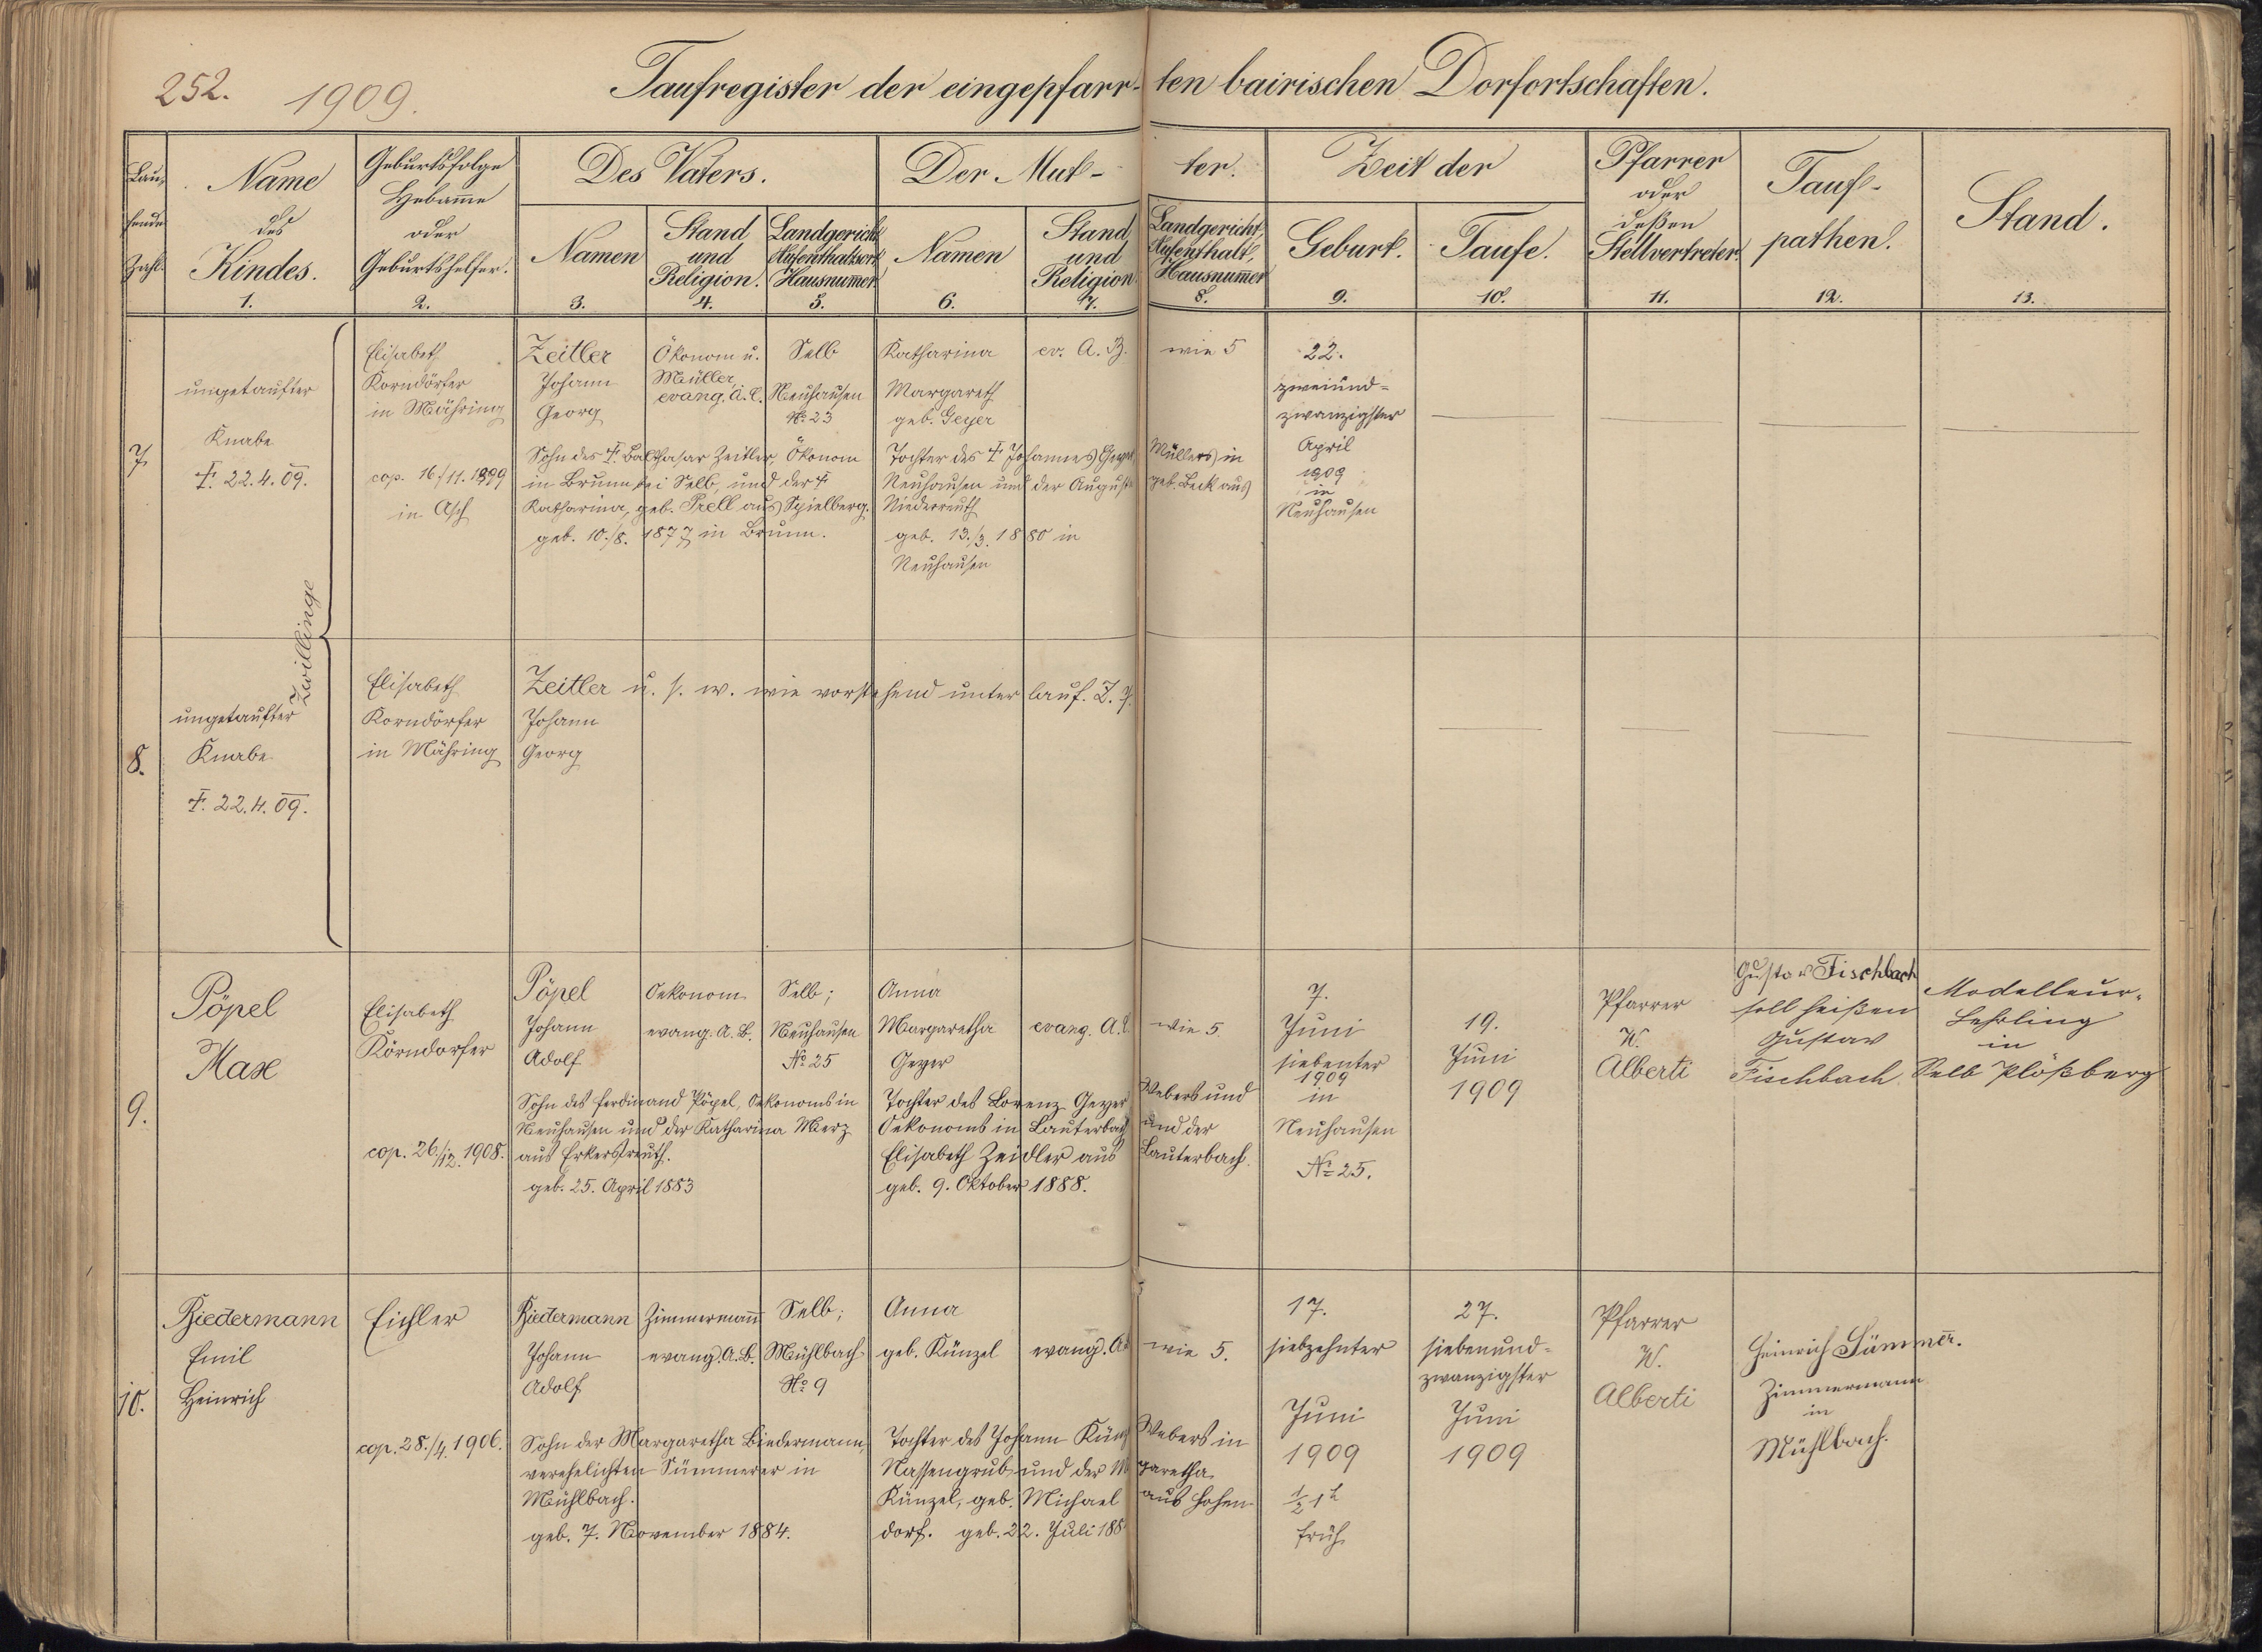 252.
1909.
Taufregister der eingepfarr-ten bairischen Dorfortschaften.
Lau-
fende
Zahl.
Name
des
Kindes.
1.
Geburtsfolge
Hebame
oder
Geburtshelfer.
2.
Des Vaters.
Namen
3.
Stand
und
Religion.
4.
Landgericht
Aufenthaltsort
Hausnummer
5.
Der Mut-ter.
Namen
6.
Stand
und
Religion
7.
Landgericht,
Aufenthalt,
Hausnummer
8.
Zeit der
Geburt.
9.
Taufe.
10.
Pfarrer
oder
deßen
Stellvertreter.
11.
Tauf-
pathen.
12.
Stand.
13.
7.
ungetaufter
Knabe
†. 22.4.09.
Zwillinge
Elisabeth
Korndörfer
in Mähring
cop. 16/11.1899
in Asch
Zeitler
Johann
Georg
Ökonom u.
Müller,
evang. A.C.
Selb
Neuhausen
No. 23
Sohn des †. Balthasar Zeitler, Ökonom
in Brunn bei Selb, und der †
Katharina, geb. Prell aus Spielberg.
geb. 10./8. 1877 in Brunn.
Katharina
Margareth
geb. Geyer
ev. A. B.
wie 5
Tochter des † Johannes Geyer, Müllers in
Neuhausen und der Auguste geb. Beck aus
Niederreuth
geb. 13./3. 1880 in
Neuhausen
22.
zweiund=
zwanzigster
April
1909
in
Neuhausen
8.
ungetaufter
Knabe
†. 22.4.09.
Elisabeth
Korndörfer
in Mähring
Zeitler u. s. w. wie vorstehend unter lauf. Z. 7.
Johann
Georg
9.
Pöpel
Max
Elisabeth
Körndorfer
cop. 26./12. 1908.
Pöpel
Johann
Adolf
Oekonom
evang. A. B.
Selb;
Neuhausen
No 25
Sohn des Ferdinand Pöpel, Oekonoms in
Neuhausen und der Katharina Merz
aus Erkersreuth.
geb. 25. April 1883
Anna
Margaretha
Geyer
evang. A.
wie 5
Tochter des Lorenz Geyer Webers und
Oekonoms in Lauterbach und der
Elisabeth Zeidler aus Lauterbach.
geb. 9. Oktober 1888.
7.
Juni
siebenter
1909
in
Neuhausen
No 25.
19.
Juni
1909
Pfarrer
W.
Alberti
Gustav Fischbach
soll heißen
Gustav
Fischbach
Modelleur-
Lehrling
in
Selb Plößberg
10.
Biedermann
Emil
Heinrich
Eichler
cop. 28./4. 1906.
Biedermann
Johann
Adolf
Zimmermann
evang. A.B.
Selb;
Mühlbach
No 9
Sohn der Margaretha Biedermann,
verehelichten Sümmerer in
Mühlbach.
geb. 7. November 1884.
Anna
geb. Künzel
evang. A.
wie 5.
Tochter des Johann Künz Webers in
Nassengrub und der Margaretha
Künzel, geb. Michael aus Hohen-
dorf. geb. 22. Juli 188
17.
siebzehnter
Juni
1909
½1h
früh
27.
siebenund=
zwanzigster
Juni
1909
Pfarrer
W.
Alberti
Heinrich Sümmer.
Zimmermann
in
Mühlbach.